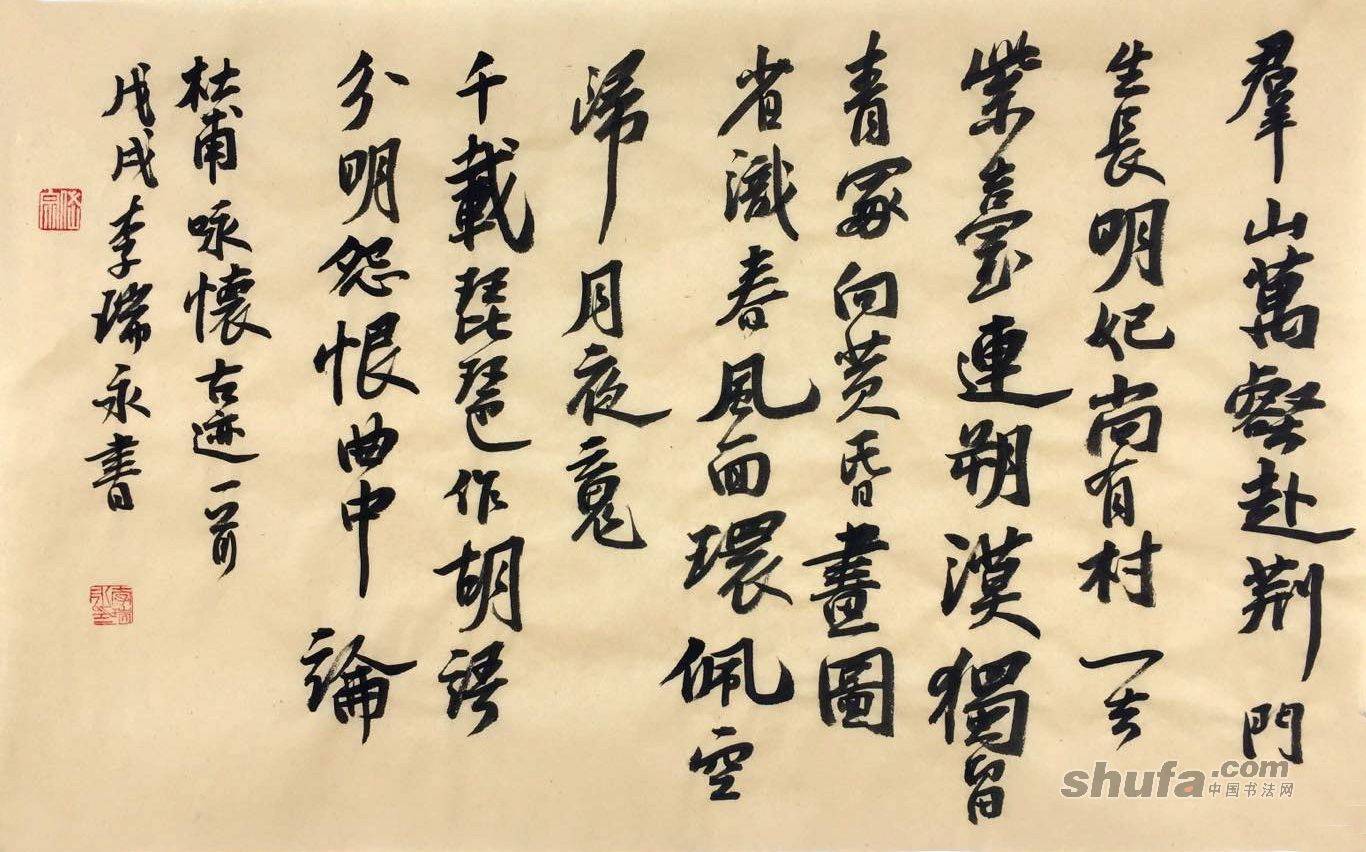 羣山萬壑赴荆門
生長明妃尚有村一去
紫臺連朔漠獨留
青冢向黄昏畫圖
省識春風面環佩空
歸月夜魂
千載琵琶作胡語
分明怨恨曲中論
杜甫咏懷古迹一首
戊戌李瑞永書
shufa.com
中国书法网